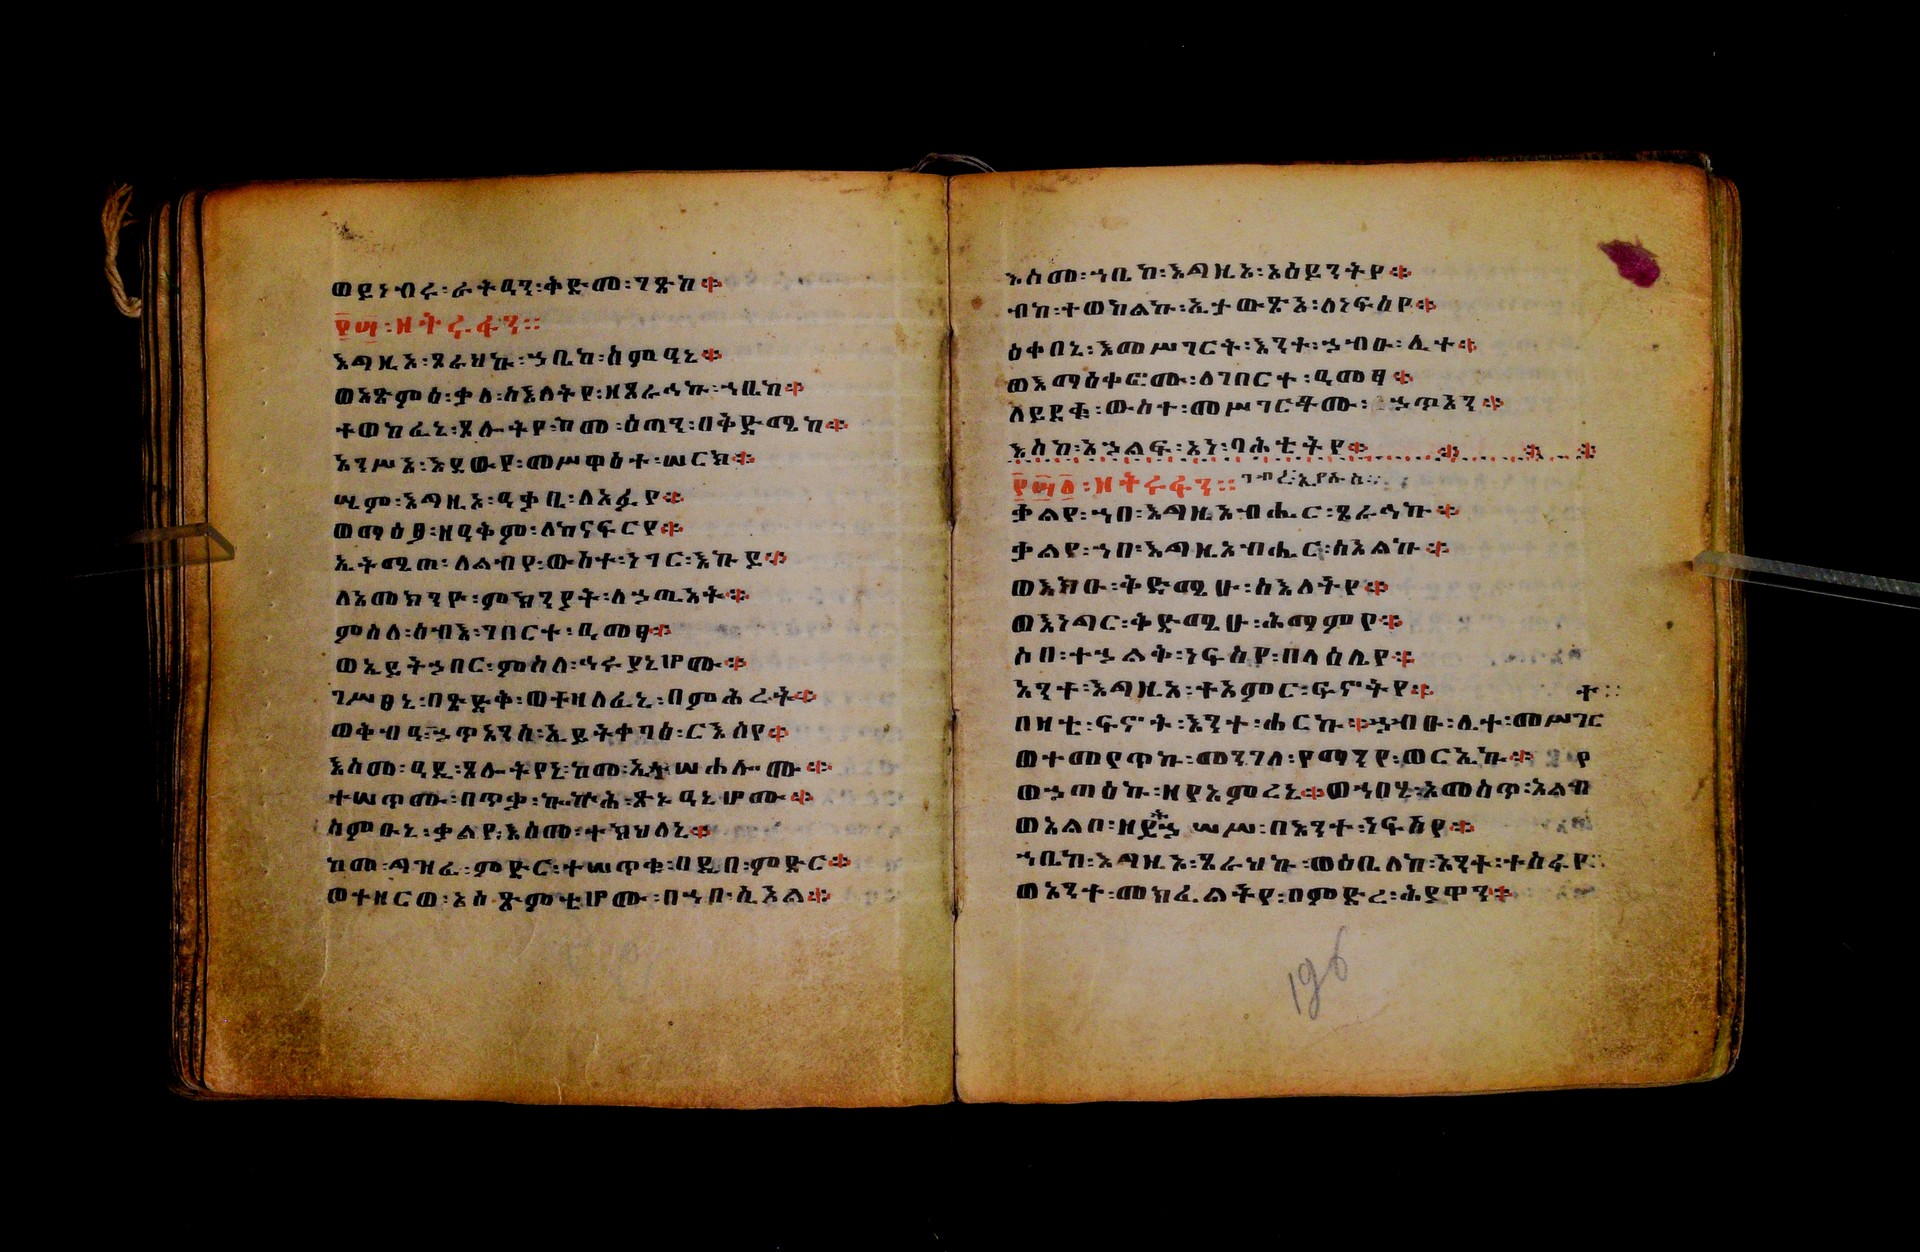 ወይነብሩ፡ራትዓን፡ቅድመ፡ገጽከ።
፻፵፡ዘትሩፋን፡፡
እግዚአ፡ጸራህኩ፡ኀቤከ፡ስምዓኒ።
ወአጽምዕ፡ቃለ፡ስእለትየ፡ዘጸራኅኩ፡ኀቤከ።
ተወከፈኒ፡ጸሎትየ፡ከመ፡ዕጣን፡በቅድሜከ።
አንሥእ፡እደውየ፡መሥዋዕተ፡ሠርክ።
ሢም፡እግዚኦ፡ዓቃቤ፡ለአፉየ።
ወማዕፆ፡ዘዓቅም፡ለከናፍርየ።
ኢትሚጠ፡ለልብየ፡ውስተ፡ነገር፡እኩይ።
ለአመክንዮ፡ምክንያት፡ለኃጢአት።
ምስለ፡ሰብእ፡ገበርተ፡ዓመፃ።
ወኢይትኃበር፡ምስለ፡ኅሩያኒሆሙ።
ገሥፀኒ፡በጽድቅ፡ወተዛለፈኒ፡በምሕረት።
ወቅብዓ፡ኃጥእንሰ፡ኢይትቀባዕ፡ርእሰየ።
እስመ፡ዓዲ፡ጸሎትየኒ፡ከመ፡ኢ ሠሐሎሙ።
ተሠጥሙ፡በጥቃ፡ኰኵሕ፡ጽኑዓኒሆሙ።
ስምዑኒ፡ቃልየ፡እስመ፡ተክህለኒ።
ከመ፡ግዝፈ፡ምድር፡ተሠጥቁ፡በዲበ፡ምድር።
ወተዘርወ፡አዕጽምቲሆሙ፡በኀበ፡ሲኦል።
እስመ፡ኀቤከ፡እግዚኦ፡አዕይንትየ።
ብከ፡ተወከልኩ፡ኢታውጽእ፡ለነፍስየ።
ዕቀበኒ፡እመሥገርት፡እንተ፡ኃብዑ፡ሊተ።
ወእማዕቀፎሙ፡ለገበርተ፡ዓመፃ።
ለይደቁ፡ውስተ፡መሥገርቶሙ፡ ኃጥኣን።
እስከ፡አኃልፍ፡አነ፡ባሕቲትየ።
፻፵፩፡ዘትሩፋን፡፡
ቃልየ፡ኀበ፡እግዚአብሔር፡ጸራኅኩ።
ቃልየ፡ኀበ፡እግዚአብሔር፡ሰአልኩ።
ወእክዑ፡ቅድሜሁ፡ስእለትየ።
ወእነግር፡ቅድሜሁ፡ሕማምየ።
ሶበ፡ተኃልቅ፡ነፍስየ፡በላዕሌየ።
አንተ፡እግዚኦ፡ተአምር፡ፍኖትየ።
ተ፡፡
በዛቲ፡ፍኖት፡እንተ፡ሖርኩ።ኃብዑ፡ሊተ፡መሥገር
ወተመየጥኩ፡መንገለ፡የማንየ፡ወርኢኩ።
ወኃጣዕኩ፡ዘያአምረኒ።ወኀበሂ፡አመስጥ፡አልብ
ወአልቦ፡ዘይኃ ሠሥ፡በእንተ፡ነፍሽየ።
ኀቤከ፡እግዚኦ፡ጸራህኩ፡ወዕቤለከ፡አንተ፡ተስፋየ፡
ወአንተ፡መክፈልትየ፡በምድረ፡ሕያዋን።
196